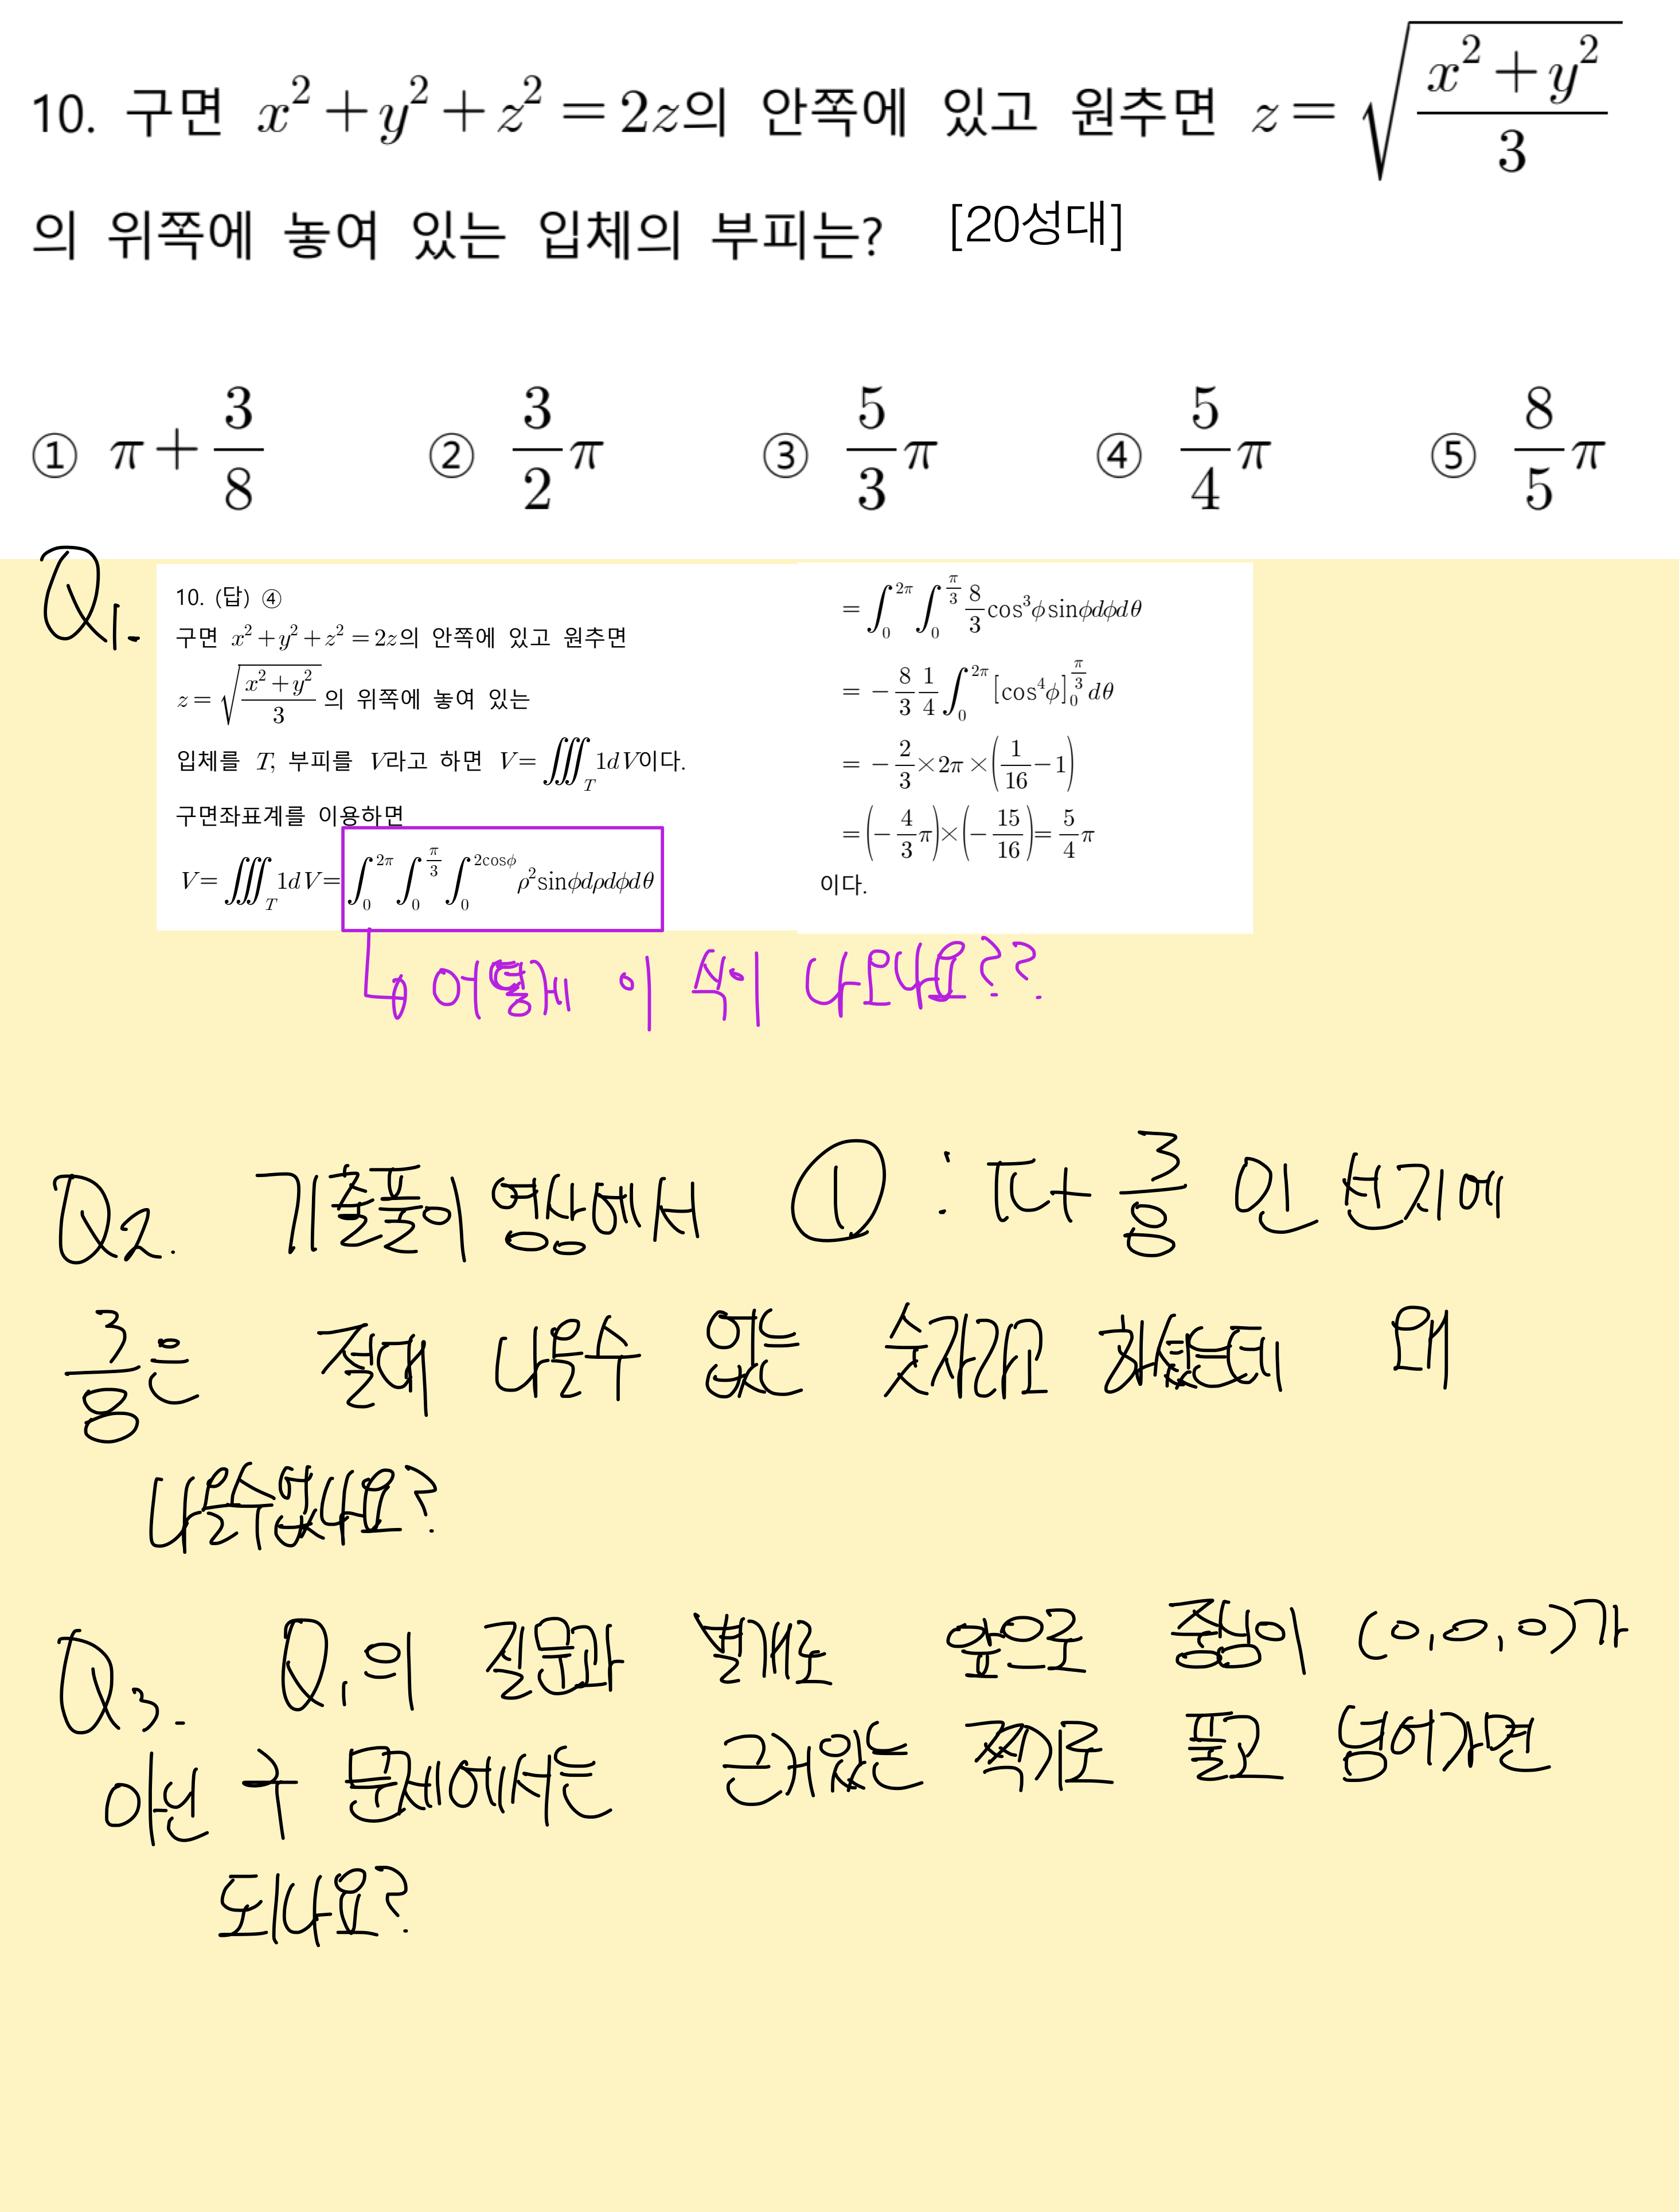 10. 구면 x² + y² + z² = 2z의 안쪽에 있고 원추면 z = √((x² + y²)/3)
의 위쪽에 놓여 있는 입체의 부피는? [20성대]
① π + 3/8 ② 3/2 π ③ 5/3 π ④ 5/4 π ⑤ 8/5 π
Q1.
10. (답) ④
구면 x² + y² + z² = 2z의 안쪽에 있고 원추면
z = √((x² + y²)/3) 의 위쪽에 놓여 있는
입체를 T, 부피를 V라고 하면 V = ∭_T 1dV이다.
구면좌표계를 이용하면
V = ∭_T 1dV = ∫_0^{2π} ∫_0^{π/3} ∫_0^{2cosφ} ρ²sinφdρdφdθ
= ∫_0^{2π} ∫_0^{π/3} 8/3 cos³φsinφdφdθ
= − 8/3 1/4 ∫_0^{2π} [cos⁴φ]_0^{π/3} dθ
= − 2/3 × 2π × (1/16 − 1)
= (− 4/3 π) × (− 15/16) = 5/4 π
이다.
↳ 어떻게 이 식이 나오나요??
Q2. 기출풀이 영상에서 ① : π + 3/8 인 선지에
3/8은 절대 나올수 없는 숫자라고 하셨는데 왜
나올수없나요?
Q3. Q1의 질문과 별개로 앞으로 중심이 (0,0,0)가
아닌 구 문제에서는 근거있는 찍기로 풀고 넘어가면
되나요?